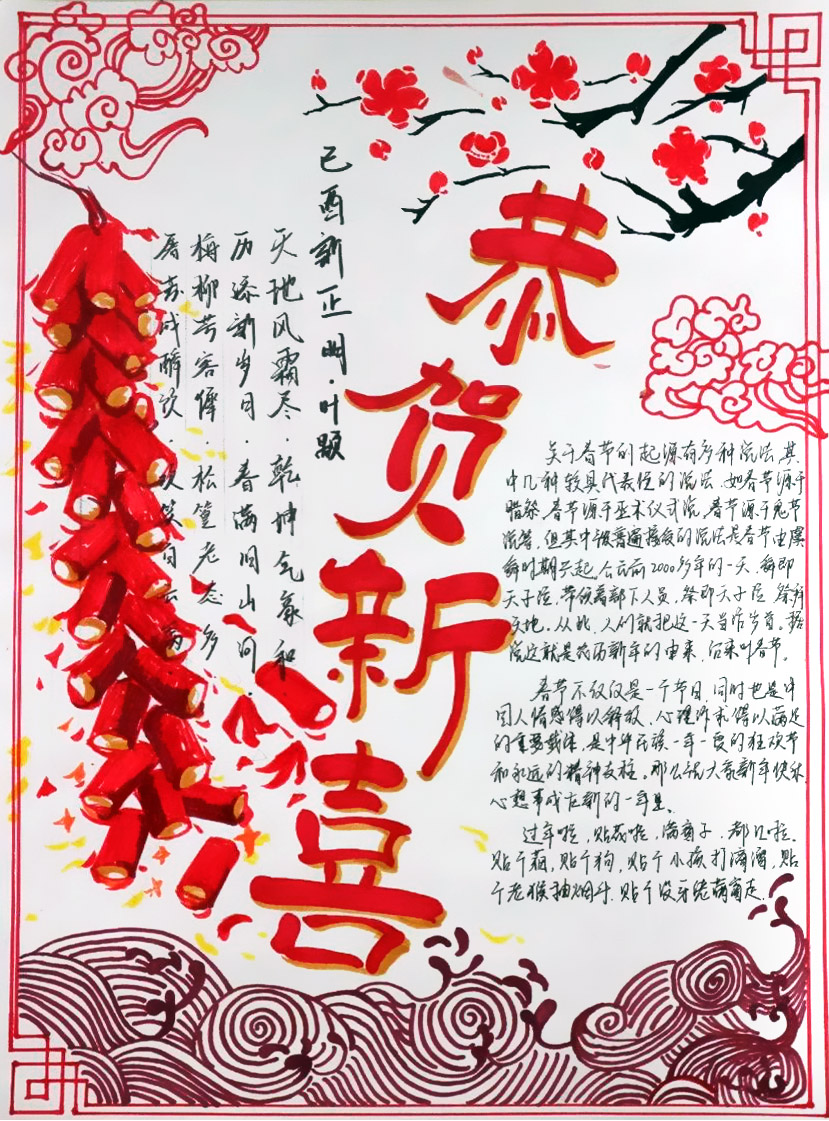 恭贺新喜
己酉新正 明·叶颙
天地风霜尽·乾坤气象和
历添新岁月·春满旧山河
梅柳芳容徲·松篁老态多
屠苏成醉饮·欢笑白云窝
关于春节的起源有多种说法,其
中几种较具代表性的说法,如春节源于
腊祭,春节源于巫术仪式说,春节源于鬼节
说等,但其中被普遍接受的说法是春节由虞
舜时期兴起,公元前2000多年的一天,舜即
天子位,带领着部下人员,祭即天子位,祭拜
天地。从此,人们就把这一天当作岁首。据
说这就是农历新年的由来,后来叫春节。
春节不仅仅是一个节日,同时也是中
国人情感得以释放、心理诉求得以满足
的重要载体,是中华民族一年一度的狂欢节
和永远的精神支柱。那么祝大家新年快乐,
心想事成在新的一年里。
过年啦,贴花啦,满窗子,都几啦,
贴个猫,贴个狗,贴个小孩打滴溜,贴
个老猴抽烟斗,贴个没牙佬满窗走.